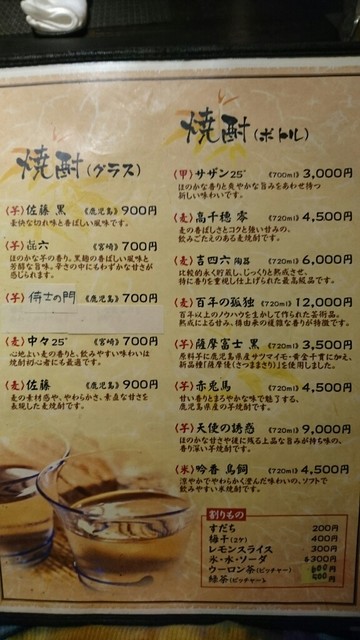 焼酎(グラス)
(芋)佐藤 黒 《鹿児島》900円
豪快な切れ味と香ばしい風味です。
(芋)㐂六 《宮崎》700円
ほのかな芋の香り。黒麹の香ばしい風味と
芳醇な旨味。辛さの中にもわずかな甘さが
感じられます。
(芋)侍士の門 《鹿児島》700円
(麦)中々25° 《宮崎》700円
心地よい麦の香りと、飲みやすい味わいは
焼酎初心者にも最適です。
(麦)佐藤 《鹿児島》900円
麦の素材感や、やわらかさ、素直な甘さを
表現した麦焼酎です。
焼酎(ボトル)
(甲)サザン25° 《700ml》3,000円
ほのかな香りと爽やかな旨みをあわせ持つ
新しい味わいです。
(麦)高千穂 零 《720ml》4,500円
麦の香ばしさとコクと強い甘みの、
飲みごたえのある麦焼酎です。
(麦)吉四六 陶器 《720ml》6,000円
比較的永く貯蔵し、じっくりと熟成させ、
特に香りを重視し仕上げられた最高級品です。
(麦)百年の孤独 《720ml》12,000円
百年以上のノウハウを生かして作られた芸術品。
熟成による甘み、樽由来の複雑な香りが特徴です。
(芋)薩摩富士 黒 《720ml》3,500円
原料芋に鹿児島県産サツマイモ・黄金千貫に加え、
新品種「薩摩使(さつままさり)」を使用しました。
(芋)赤兎馬 《720ml》4,500円
甘い香りとまろやかな味で魅了する、
鹿児島県産の芋焼酎です。
(芋)天使の誘惑 《720ml》9,000円
ほのかな甘さや後に残る上品な旨みが持ち味の、
香り深い芋焼酎です。
(米)吟香 鳥飼 《720ml》4,500円
涼やかでやわらかく澄んだ味わいの、ソフトで
飲みやすい米焼酎です。
割りもの
すだち 200円
梅干(2ケ) 400円
レモンスライス 300円
氷・水・ソーダ 各300円
ウーロン茶(ピッチャー) 600円
緑茶(ピッチャー) 500円